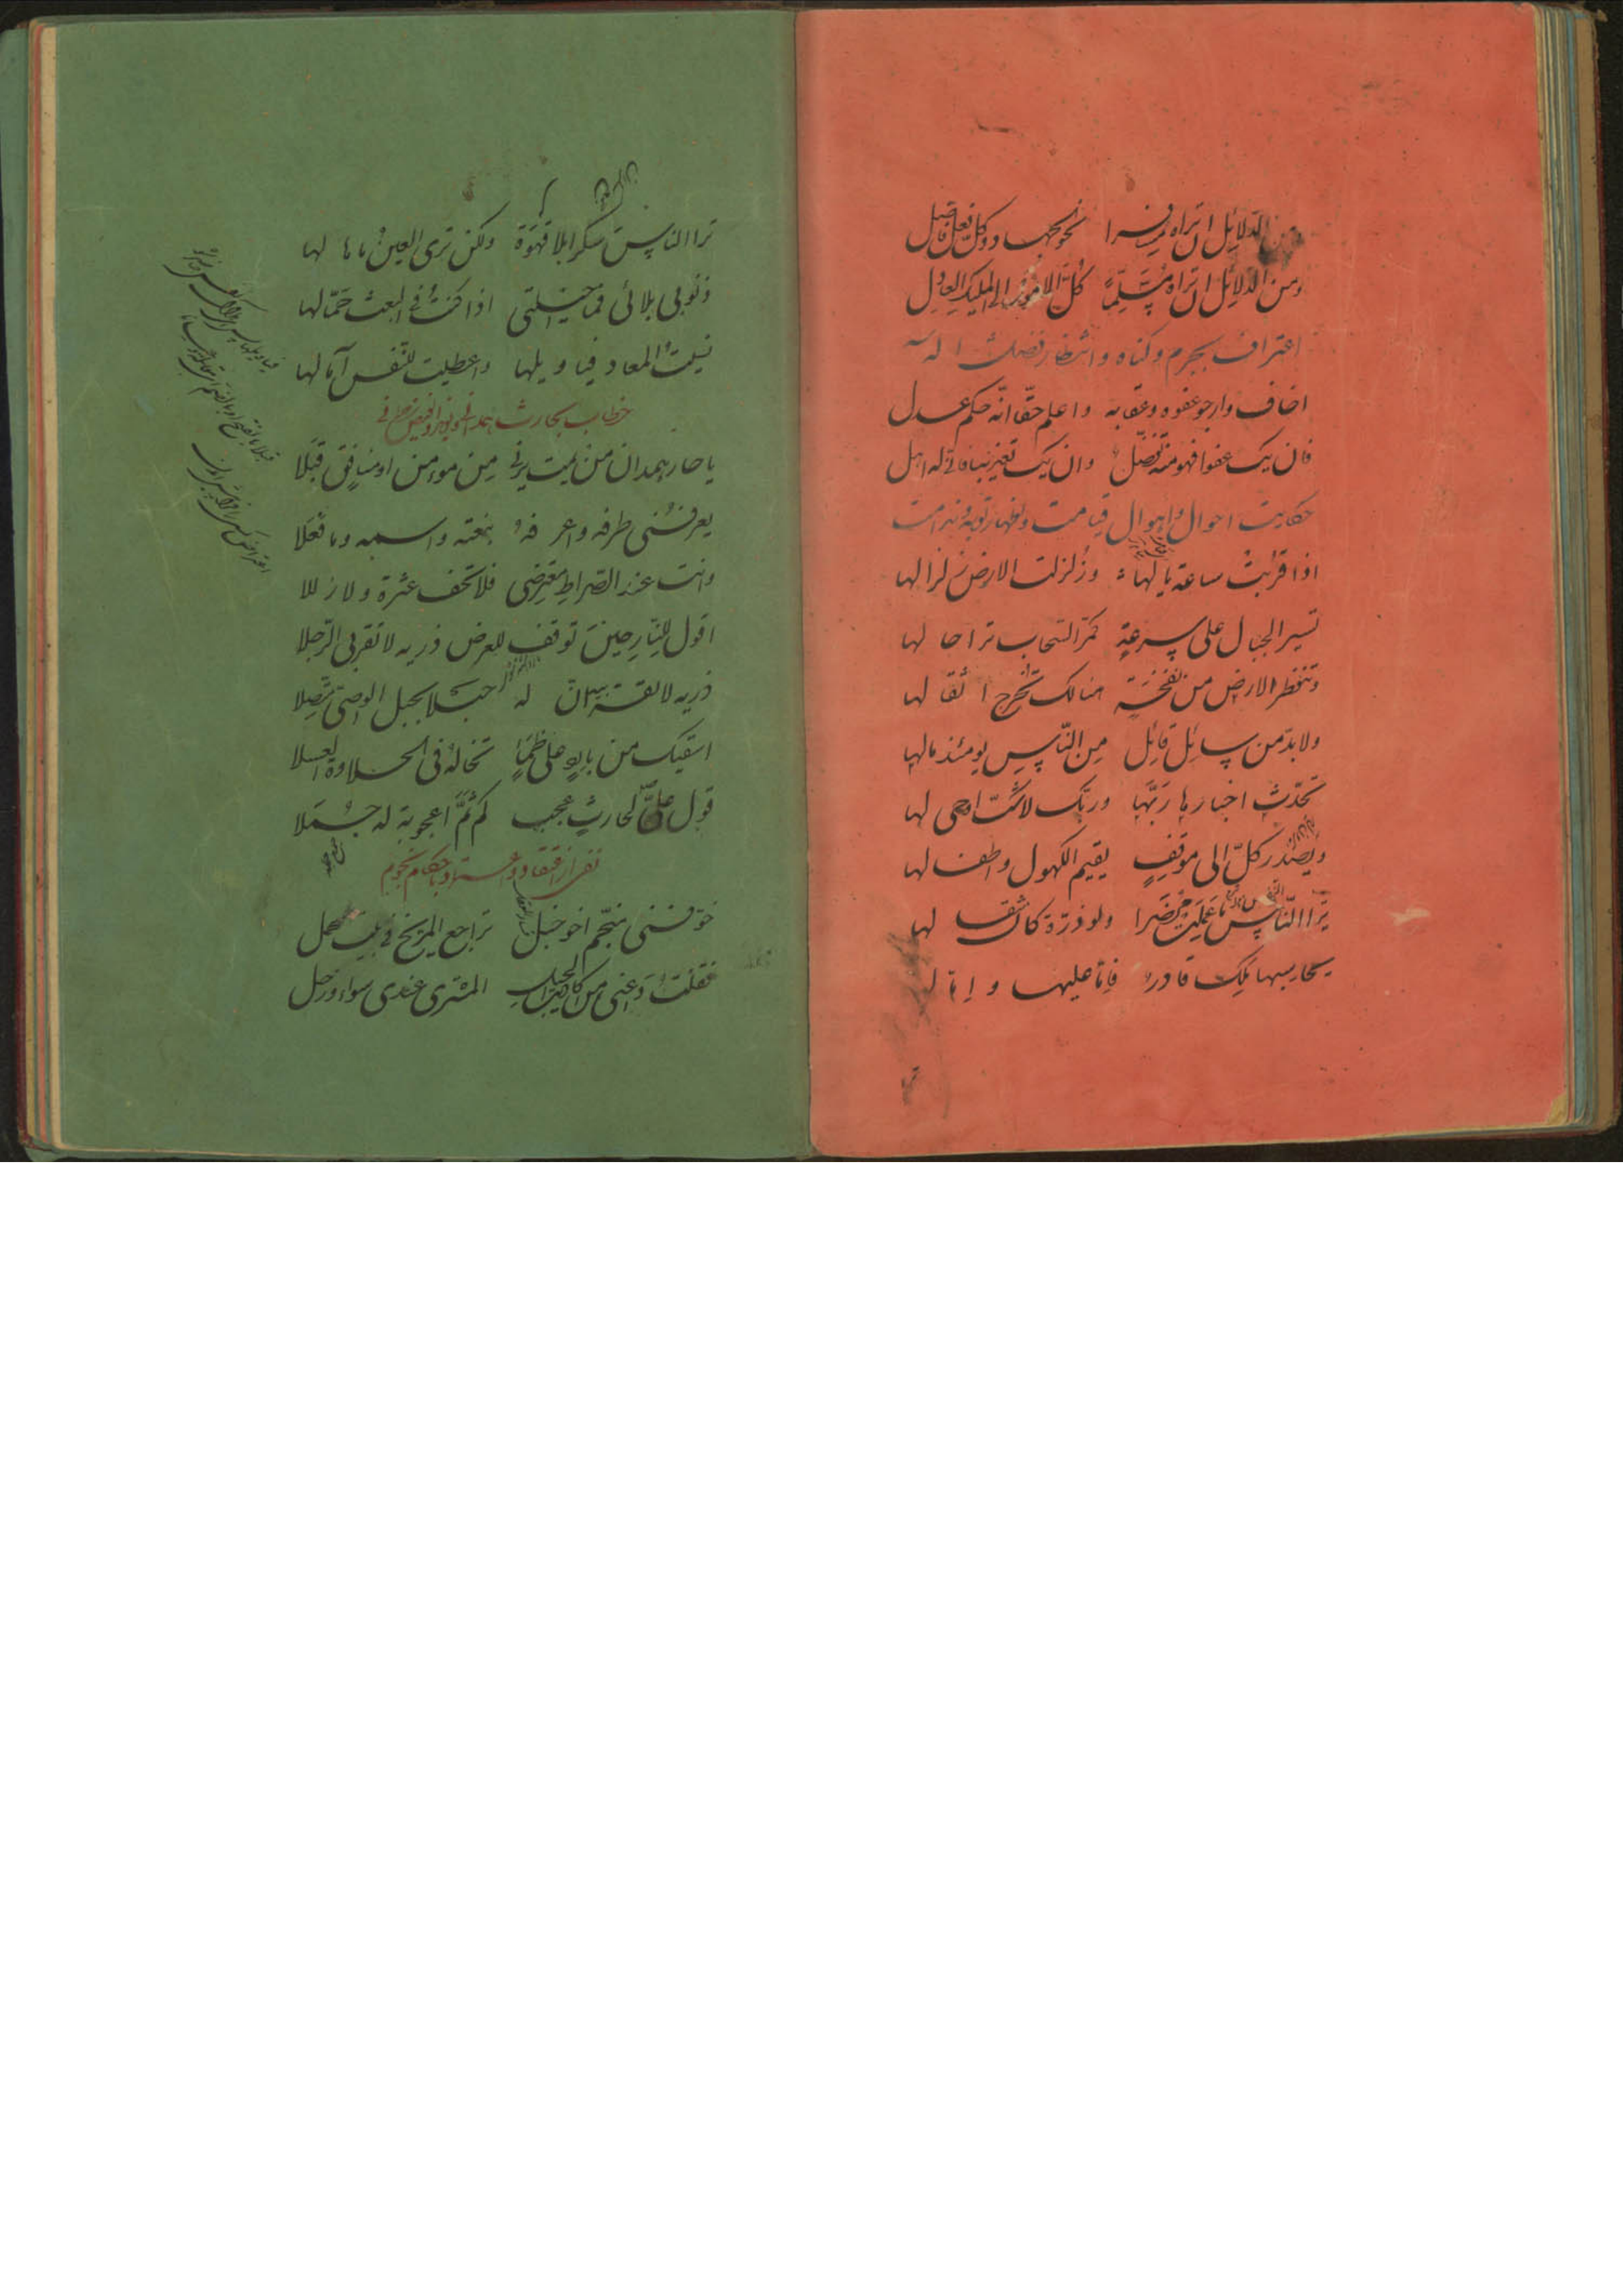 ومن الدلائل ان تراه مسافرا نحو الجهاد وكل فعل فاضل
ومن الدلائل ان تراه مسلما كل الامور الى المليك العادل
اعتراف بجرم وكناه وانتظار فضل اله
اخاف وارجو عفوه وعقابه واعلم حقا انه حكم عدل
فان يك عفوا فهو منه تفضل وان يك تعذيبا فانى له اهل
حكايت احوال واهوال قيامت واظهار توبه وندامت
اذا قربت ساعة يا لها وزلزلت الارض زلزالها
تسير الجبال على سرعة كمر السحاب ترا حالها
وتنفطر الارض من نفخة هنالك تخرج اثقالها
ولا بد من سائل قائل من الناس يومئذ مالها
تحدث اخبارها ربها وربك لا شك اوحى لها
ويصدر كل الى موقف يقيم الكهول واطفالها
ترا النفس ما عملت محضرا ولو ذرة كان مثقالها
يحاسبها ملك قادر فاما عليها واما لها
ترا الناس سكرا بلا قهوة ولكن ترى العين ما مالها
ذنوبى بلائى فما حيلتى اذا كنت فى البعث حمالها
نسيت المعاد فيا ويلها واعطيت للنفس آمالها
خطاب بحارث همدانى
يا حار همدان من يمت يرنى من مومن او منافق قبلا
يعرفنى طرفه واعرفه بنعته واسمه وما فعلا
وانت عند الصراط معترضى فلا تخف عثرة ولا زللا
اقول للنار حين توقف للعرض ذريه لا تقربى الرجلا
ذريه لا تقربيه ان له حبلا بحبل الوصى متصلا
اسقيك من بارد على ظمأ تخاله فى الحلاوة العسلا
قول على لحارث عجب كم ثم اعجوبة له جملا
باحكام نجوم
خوفنى منجم اخو خبل تراجع المريخ فى بيت الحمل
فقلت دعنى من اكاذيب الحيل المشترى عندى سواء وزحل